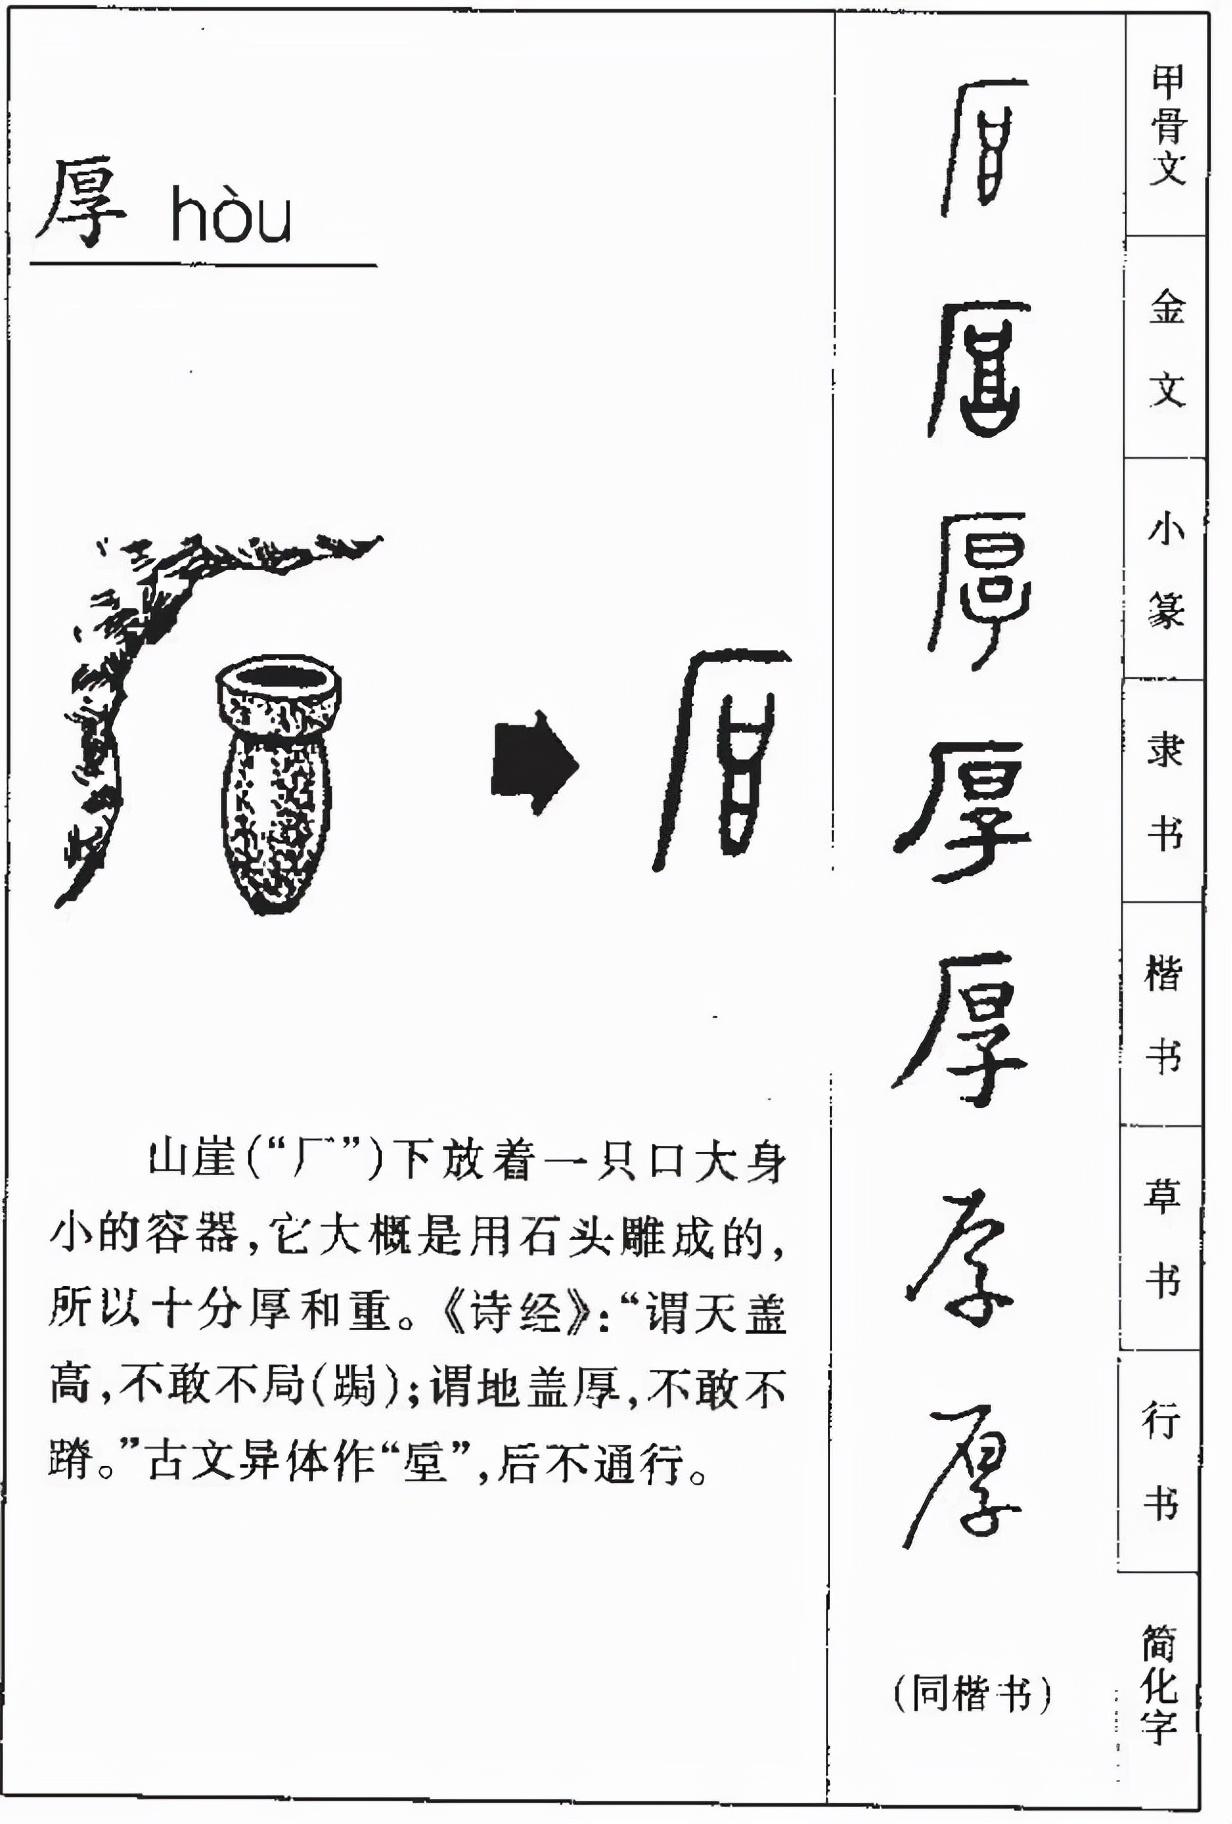 厚 hòu
山崖(“厂”)下放着一只口大身
小的容器,它大概是用石头雕成的,
所以十分厚和重。《诗经》:“谓天盖
高,不敢不局(跼);谓地盖厚,不敢不
蹐。”古文异体作“垕”,后不通行。
甲骨文
金文
小篆
隶书
厚
楷书
厚
草书
厚
行书
厚
简化字
(同楷书)